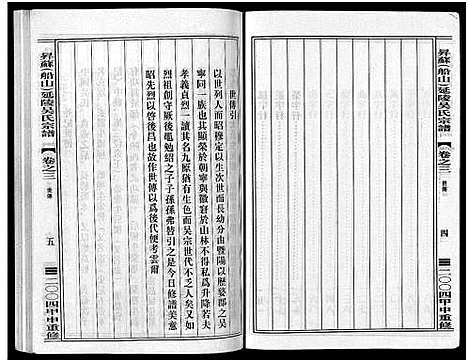 昇蘇(船山)延陵吳氏宗譜
卷之三
世傳
四
二〇〇四甲申重修
世傳引
以世列人而昭穆定以生次世而長幼分由暨陽以歷婺郡之吳
寧同一族也其顯榮於朝寧與徽容於山林不得私爲升降若夫
孝義貞烈一讀其名凜猶有生色而吳宗世代不乏今日修譜美意
烈祖創守厥後黽勉紹之子子孫孫弗替引之是
昭先烈以啓後昌也故作世傳以爲後代便考雲爾
昇蘇(船山)延陵吳氏宗譜
卷之三
世傳
五
二〇〇四甲申重修